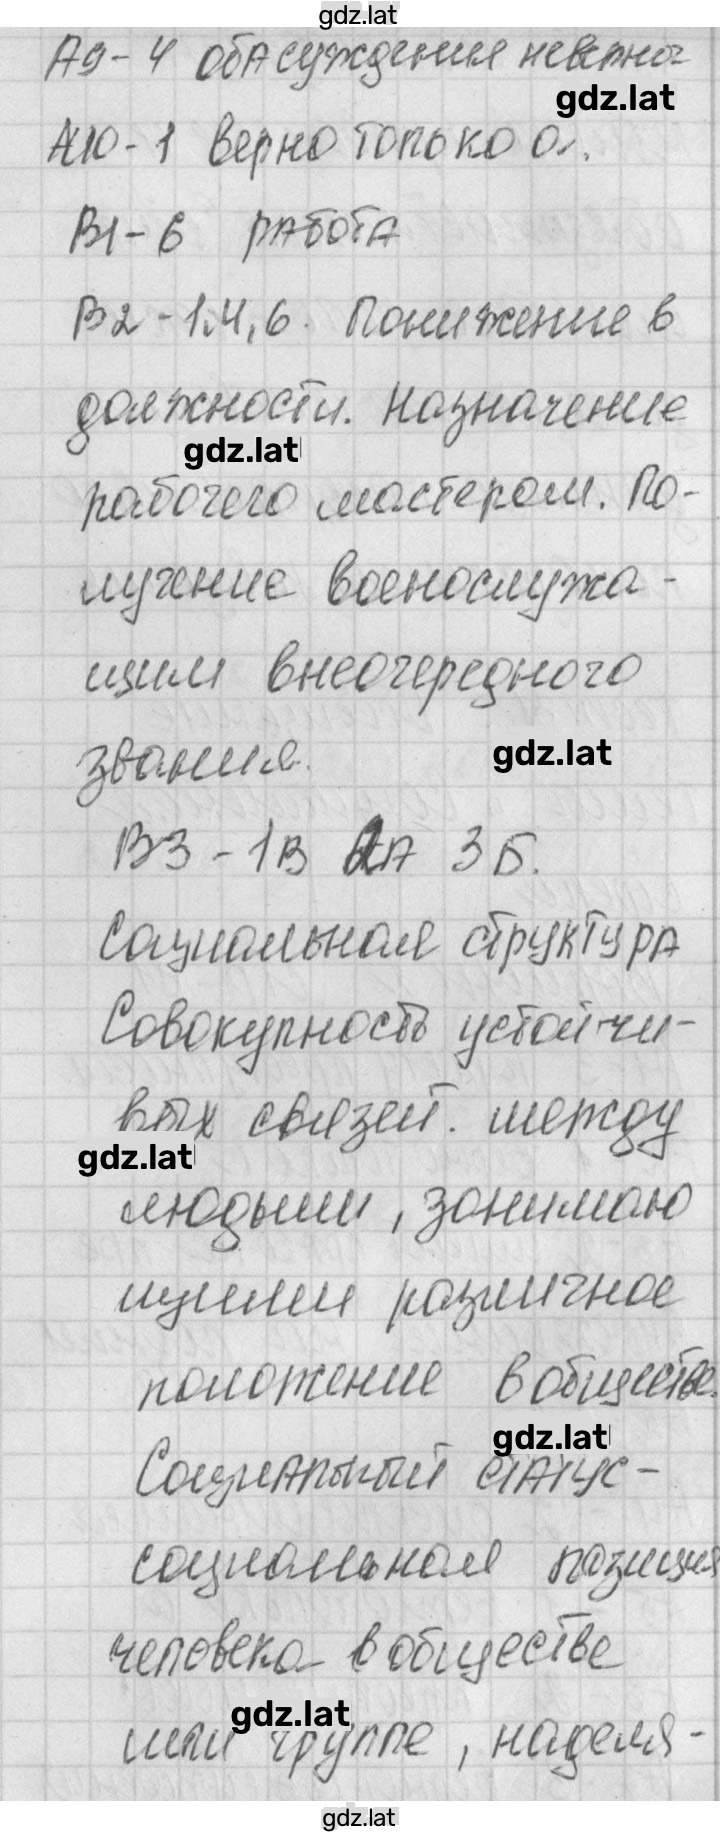 gdz.lat
А9-4 оба суждения неверны
gdz.lat
А10-1 верно только а.
В1-6 работа
В2-1.4,6. Понижение в
должности. Назначение
gdz.lat
рабочего мастером. По-
лучение военослужа-
щим внеочередного
звания.
gdz.lat
В3-1В 2А 3Б.
Социальная структура
Совокупность устойчи-
вых связей. между
gdz.lat
людьми, занимаю
щими различное
положение в обществе.
gdz.lat
Социальный статус-
социальная позиция
человека в обществе
или группе, наделя-
gdz.lat
gdz.lat